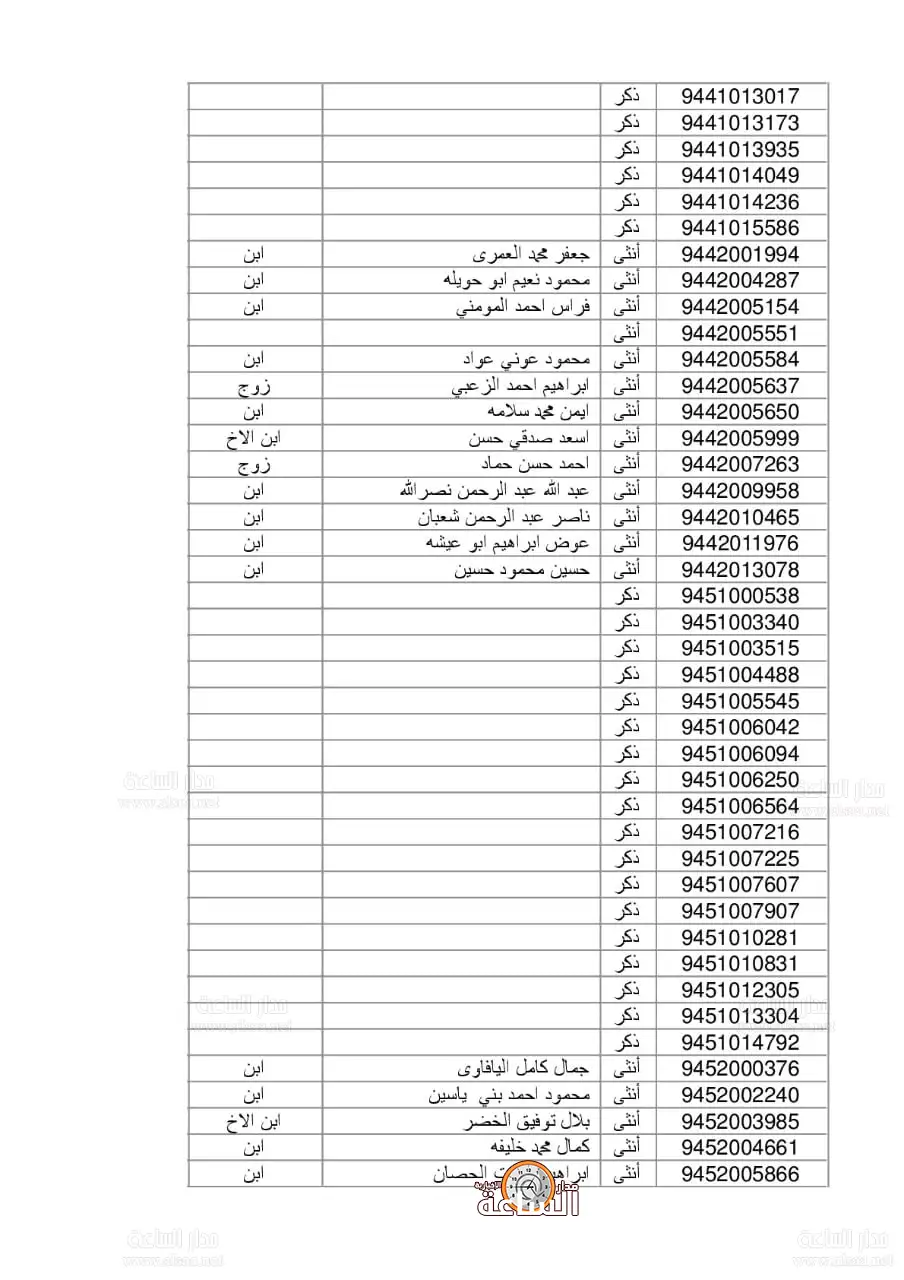 9441013017 ذكر
9441013173 ذكر
9441013935 ذكر
9441014049 ذكر
9441014236 ذكر
9441015586 ذكر
9442001994 أنثى جعفر محمد العمرى ابن
9442004287 أنثى محمود نعيم ابو حويله ابن
9442005154 أنثى فراس احمد المومني ابن
9442005551 أنثى
9442005584 أنثى محمود عوني عواد ابن
9442005637 أنثى ابراهيم احمد الزعبي زوج
9442005650 أنثى ايمن محمد سلامه ابن
9442005999 أنثى اسعد صدقي حسن ابن الاخ
9442007263 أنثى احمد حسن حماد زوج
9442009958 أنثى عبد الله عبد الرحمن نصرالله ابن
9442010465 أنثى ناصر عبد الرحمن شعبان ابن
9442011976 أنثى عوض ابراهيم ابو عيشه ابن
9442013078 أنثى حسين محمود حسين ابن
9451000538 ذكر
9451003340 ذكر
9451003515 ذكر
9451004488 ذكر
9451005545 ذكر
9451006042 ذكر
9451006094 ذكر
9451006250 ذكر
9451006564 ذكر
9451007216 ذكر
9451007225 ذكر
9451007607 ذكر
9451007907 ذكر
9451010281 ذكر
9451010831 ذكر
9451012305 ذكر
9451013304 ذكر
9451014792 ذكر
9452000376 أنثى جمال كامل اليافاوى ابن
9452002240 أنثى محمود احمد بني ياسين ابن
9452003985 أنثى بلال توفيق الخضر ابن الاخ
9452004661 أنثى كمال محمد خليفه ابن
9452005866 أنثى الحصان ابن
مدار الإخبارية
الساعة
مدار الساعة
www.alsaa.net
مدار الساعة
www.alsaa.net
مدار الساعة
www.alsaa.net
مدار الساعة
www.alsaa.net
مدار الساعة
www.alsaa.net
مدار الساعة
www.alsaa.net